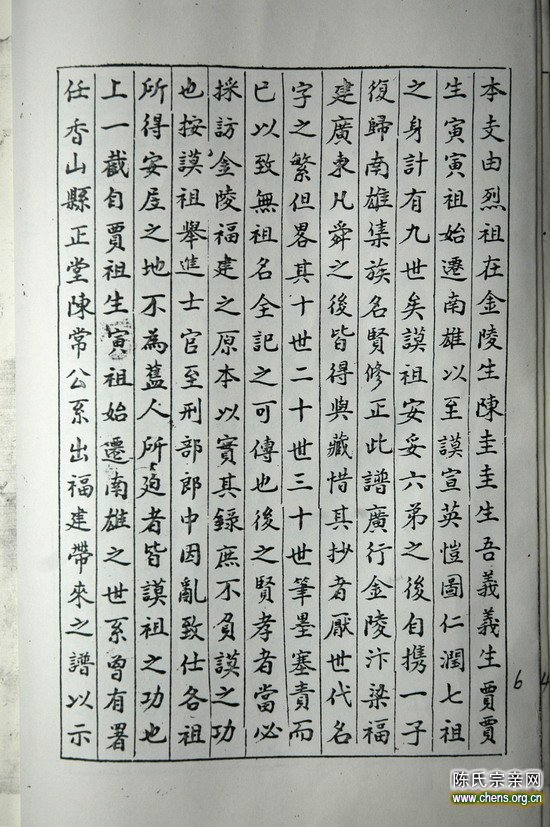 本支由烈祖在金陵生陳圭圭生吾義義生賈賈
生寅寅祖始遷南雄以至謨宣英愷圖仁潤七祖
之身計有九世矣謨祖安妥六弟之後自携一子
復歸南雄集族名賢修正此譜廣行金陵汴梁福
建廣東凡舜之後皆得與藏惜其抄者厭世代名
字之繁但畧其十世二十世三十世筆墨塞責而
已以致無祖名全記之可傳也後之賢孝者當必
採訪金陵福建之原本以實其錄庶不負謨之功
也按謨祖舉進士官至刑部郎中因亂致仕各祖
所得安居之地不為蠱人所廹者皆謨祖之功也
上一截自賈祖生寅祖始遷南雄之世系曾有署
任香山縣正堂陳常公系出福建帶來之譜以示
6
4
陈氏宗亲网
www.chens.org.cn